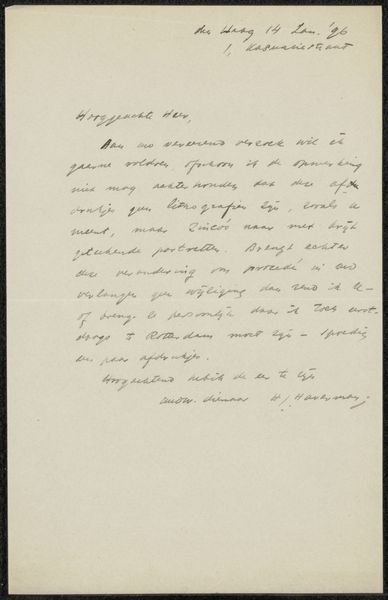 den Haag 14 Jan. '96
1, Kasuariestraat
Hooggeachte Heer,
Aan uw vereerend verzoek wil ik
gaarne voldoen ofschoon ik de opmerking
niet mag achterhouden dat deze afdr
drukjes geen lithografieën zijn, zooals u
meent, maar Zinco's naar met krijt
geteekende portretten. Brengt echter
deze verandering van procédé in uw
verlangen geen wijziging dan zend ik U-
of breng ze persoonlijk daar ik toch
daags te Rotterdam moet zijn - spoedig
een paar afdrukjes.
Hoogachtend heb ik de eer te zijn
uw dienaar H.J. Haverman